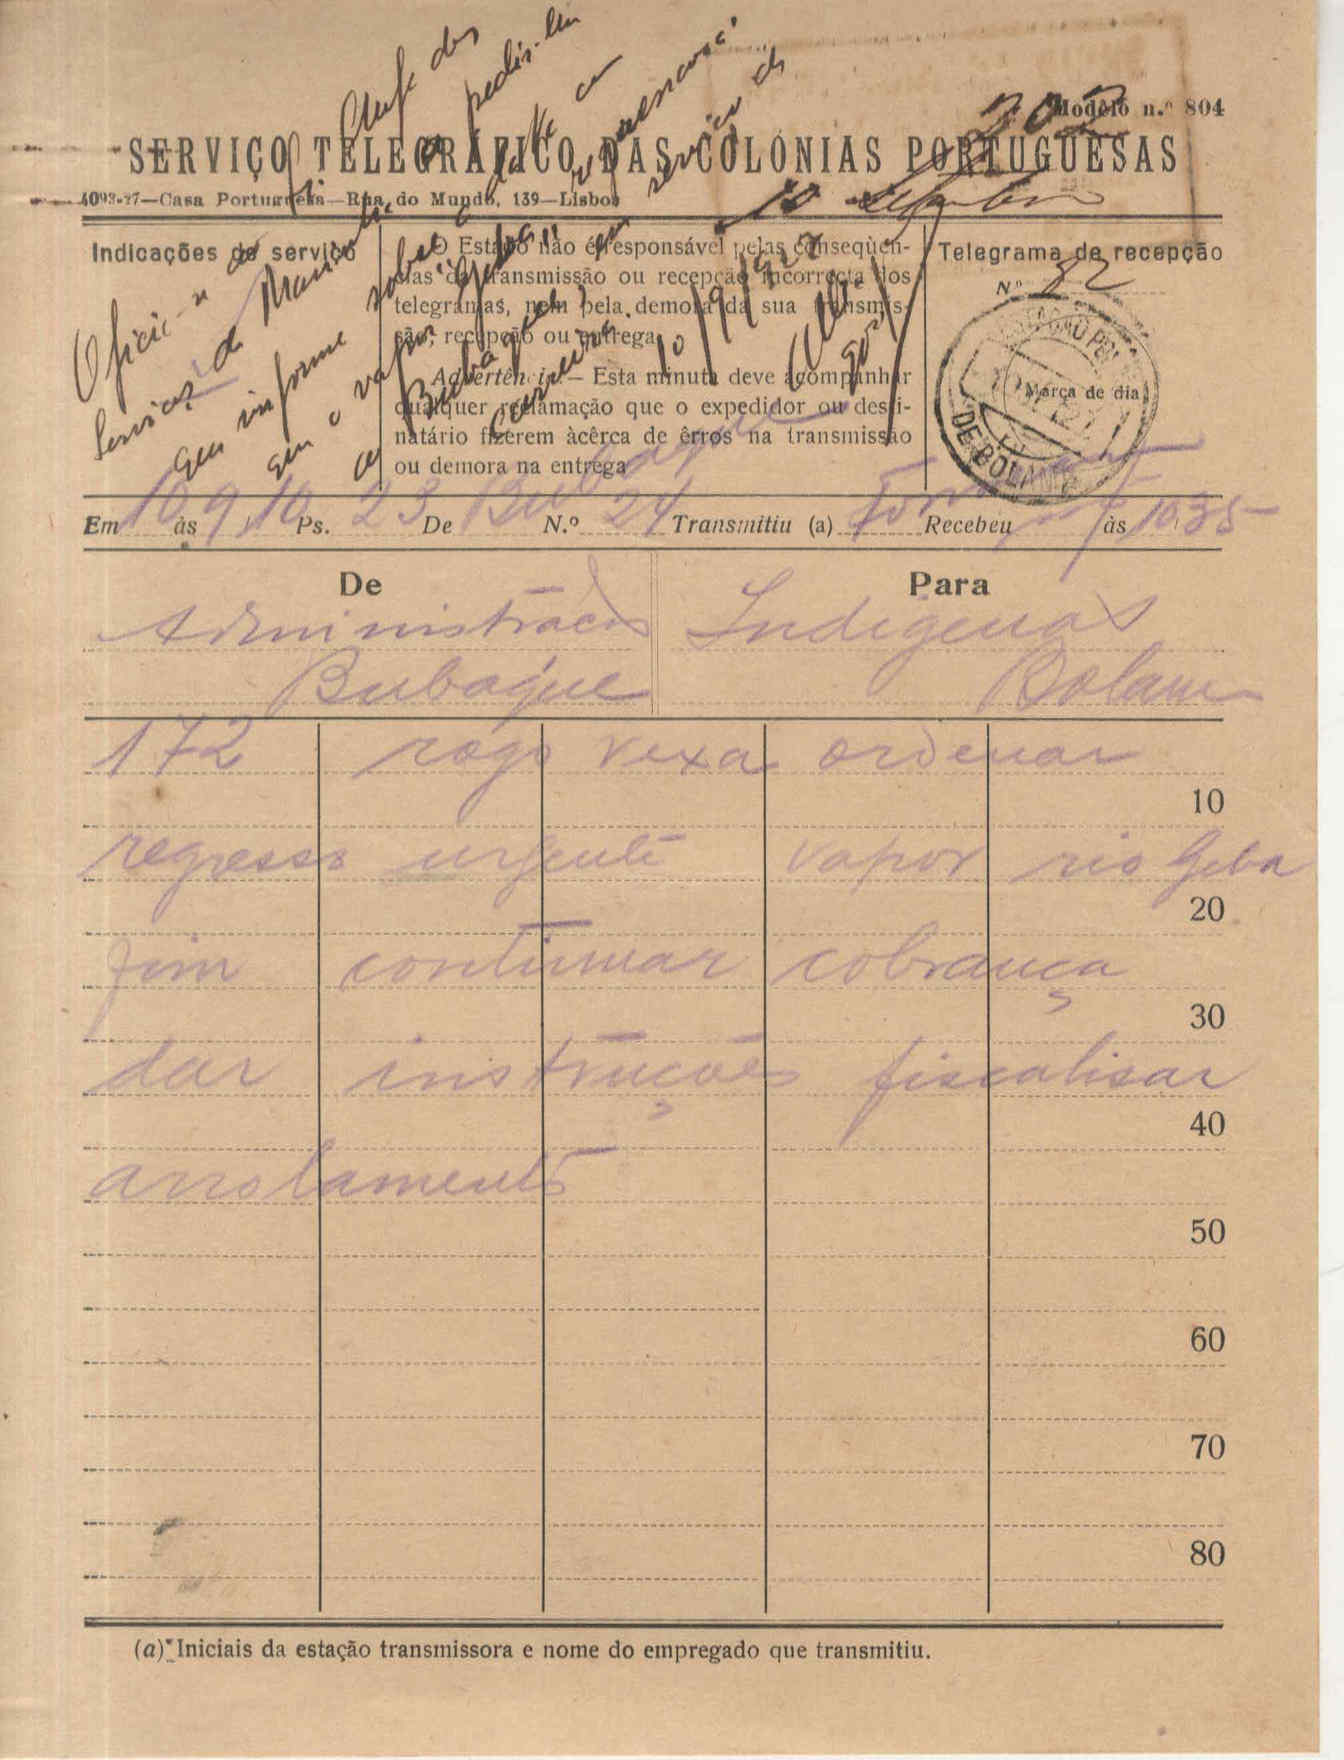 Modêlo n.º 804
202
SERVIÇO TELEGRÁFICO DAS COLÓNIAS PORTUGUESAS
4093-27—Casa Portuguesa—Rua do Mundo, 139—Lisboa
10 Setembro
Indicações de serviço
O Estado não é responsável pelas conseqüên-
cias da transmissão ou recepção incorrecta dos
telegramas, nem pela demora da sua transmis-
são, recepção ou entrega.
Advertência.— Esta minuta deve acompanhar
qualquer reclamação que o expedidor ou desti-
natário fizerem àcêrca de êrros na transmissão
ou demora na entrega
Telegrama de recepção
N.º 82
Marca de dia
DE BOLAMA
Oficie-se ao Chefe dos
Serviços de Marinha
que informe sobre
em o vapor "Geba"
Bubaque em serviço de
10/9/927
Em 10 às 9,10 Ps. 23 De Bubaque N.º 24 Transmitiu (a) Recebeu às 10 35
De
Para
Administração
Indigenas
Bubaque
Bolama
172 rogo vexa ordenar
10
regresso urgente vapor rio Geba
20
fim continuar cobrança
30
dar instruções fiscalisar
40
arrolamento
50
60
70
80
(a) Iniciais da estação transmissora e nome do empregado que transmitiu.